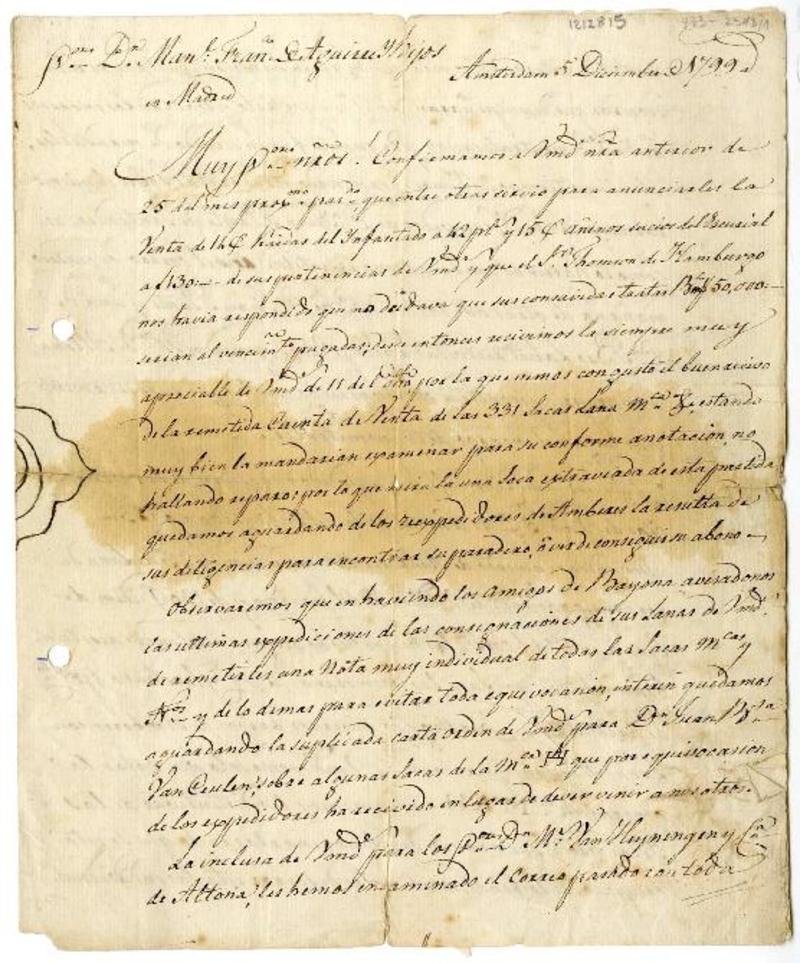 1212815
Sres Dn Manl Franco de Aguirre Y Hijos Amsterdam 5 Diciembre de 1799
en Madrid
Muy Sres nros! Confirmamos a Vmds nra anterior de
25 del mes proxmo pasdo, que entre otras servio para anunciarles la
Venta de 14 del Infantado a 42 y 15 añinos sucios del Escurial
a f 130:— de sus pertenencias de Vmds y que el Sr Thomson de Hamburgo
nos havia respondido que no dudava que sus consavidas tratas 50,000:—
serian al vencimto pagadas; desde entonces recivimos la siempre muy
apreciable de Vmds de 11 del por la que vemos con gusto el buen recivo
de la remetida Cuenta de Venta de las 331 Sacas Lana Mca estando
muy bien la mandarian examinar para su conforme anotacion, no
hallando reparo; por lo que mira la una Saca extraviada de esta partida
quedamos aguardando de los expedidores de Amberes la resulta de
sus diligencias para encontrar su paradero, ò ver de conseguir su abono.—
Observaremos que en haviendo los amigos de Bayona avisadonos
las ultimas expediciones de las consignaciones de sus Lanas de Vmds
de remetirles una Nota muy individual de todas las Sacas Mcas y
Nos y de lo demas para evitar toda equivocasion, interin quedamos
aguardando la suplicada carta orden de Vmds para Dn Juan Bta
Van Ceulen, sobre algunas Sacas de la Mca que por equivocasion
de los expedidores ha recivido en lugar de dever venir a nosotros.
La inclusa de Vmds para los Sres Dn Ms Van Heyningen y Cia
de Altona, les hemos encaminado el Correo pasado con toda